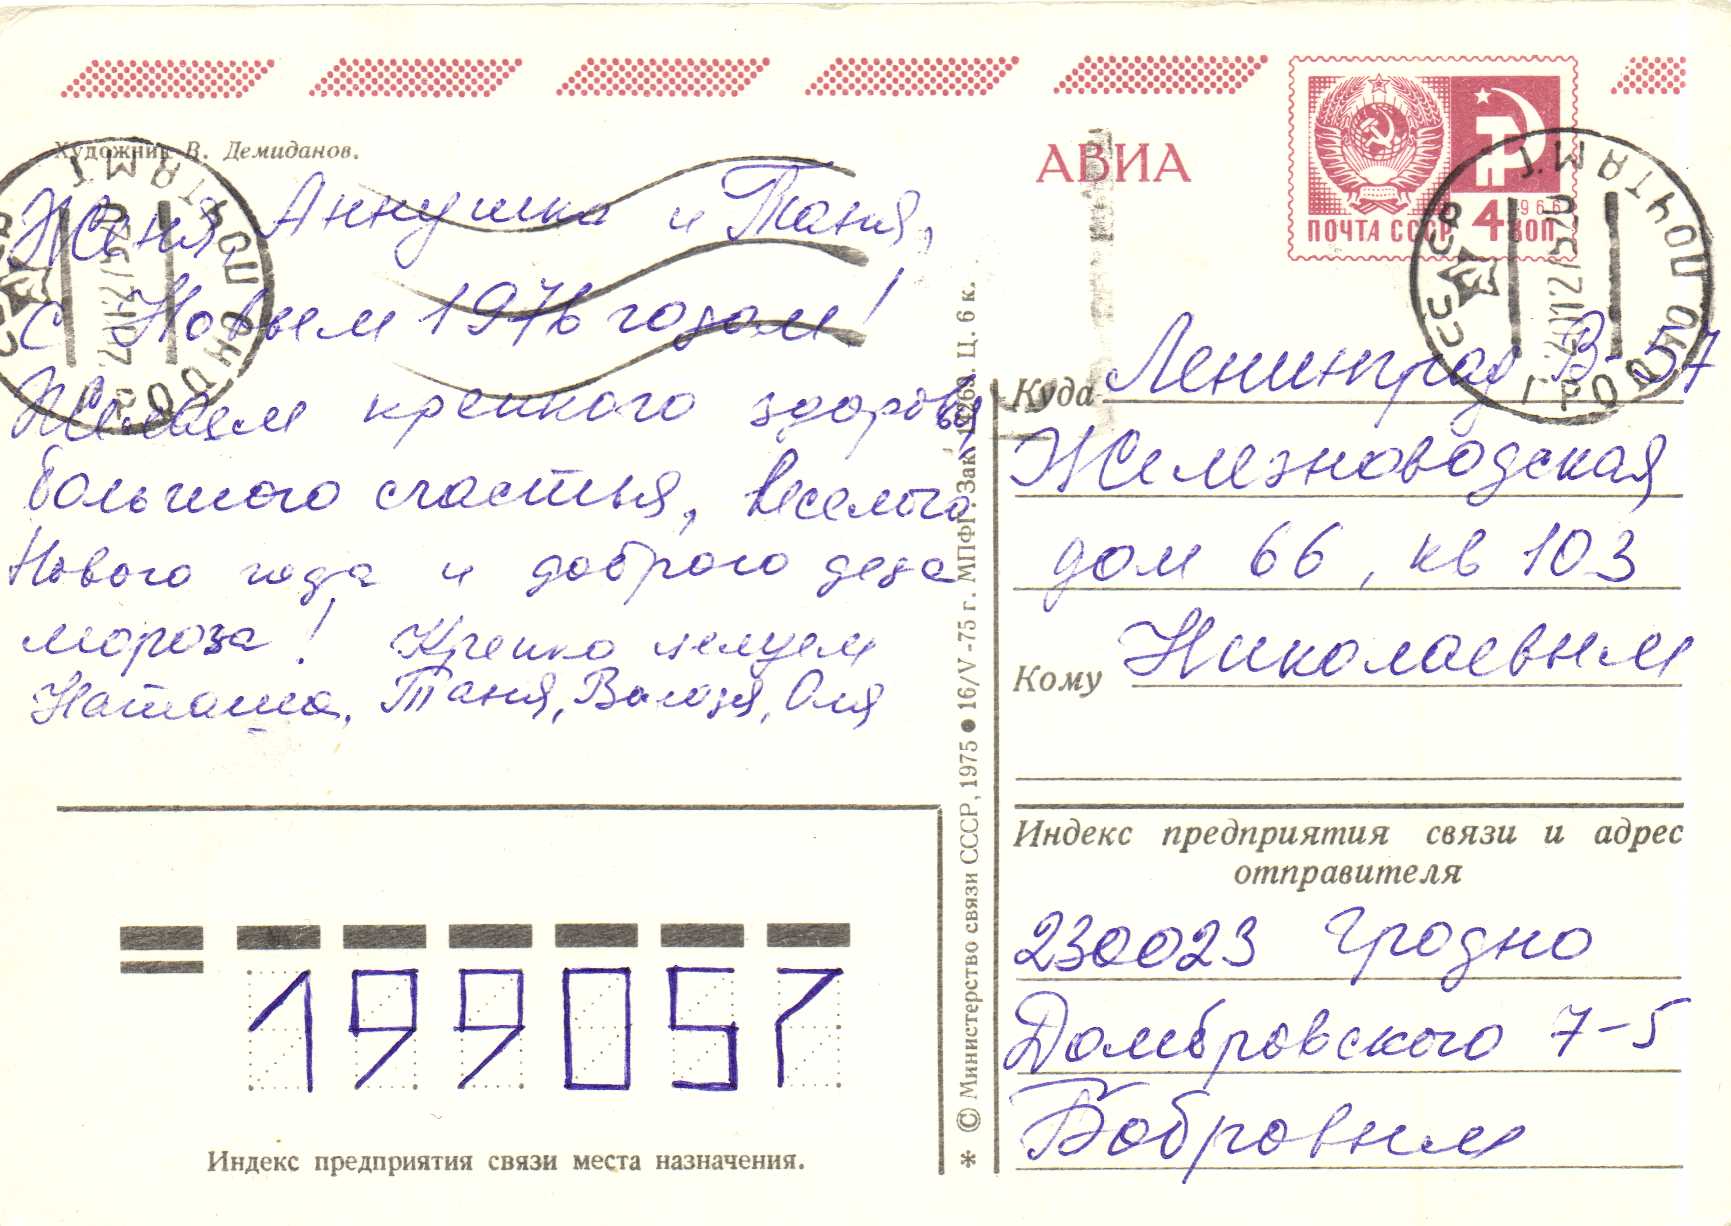 Художник В. Демиданов.
АВИА
ПОЧТА СССР 4 КОП
1966
Женя, Аннушка и Таня,
с Новым 1976 годом!
Желаем крепкого здоровья
большого счастья, веселого
Нового года и доброго деда
мороза! Крепко целуем
Наташа, Таня, Володя, Оля
Куда Ленинград В-57
Железноводская
дом 66, кв 103
Кому Николаевым
Индекс предприятия связи и адрес
отправителя
230023 Гродно
Домбровского 7-5
Бобровым
199057
Индекс предприятия связи места назначения.
* © Министерство связи СССР, 1975 ● 16/V-75 г. МПФГ. Зак. Ц. 6 к.
ГРОДНО ПОЧТАМТ
СССР
ГРОДНО ПОЧТАМТ
СССР